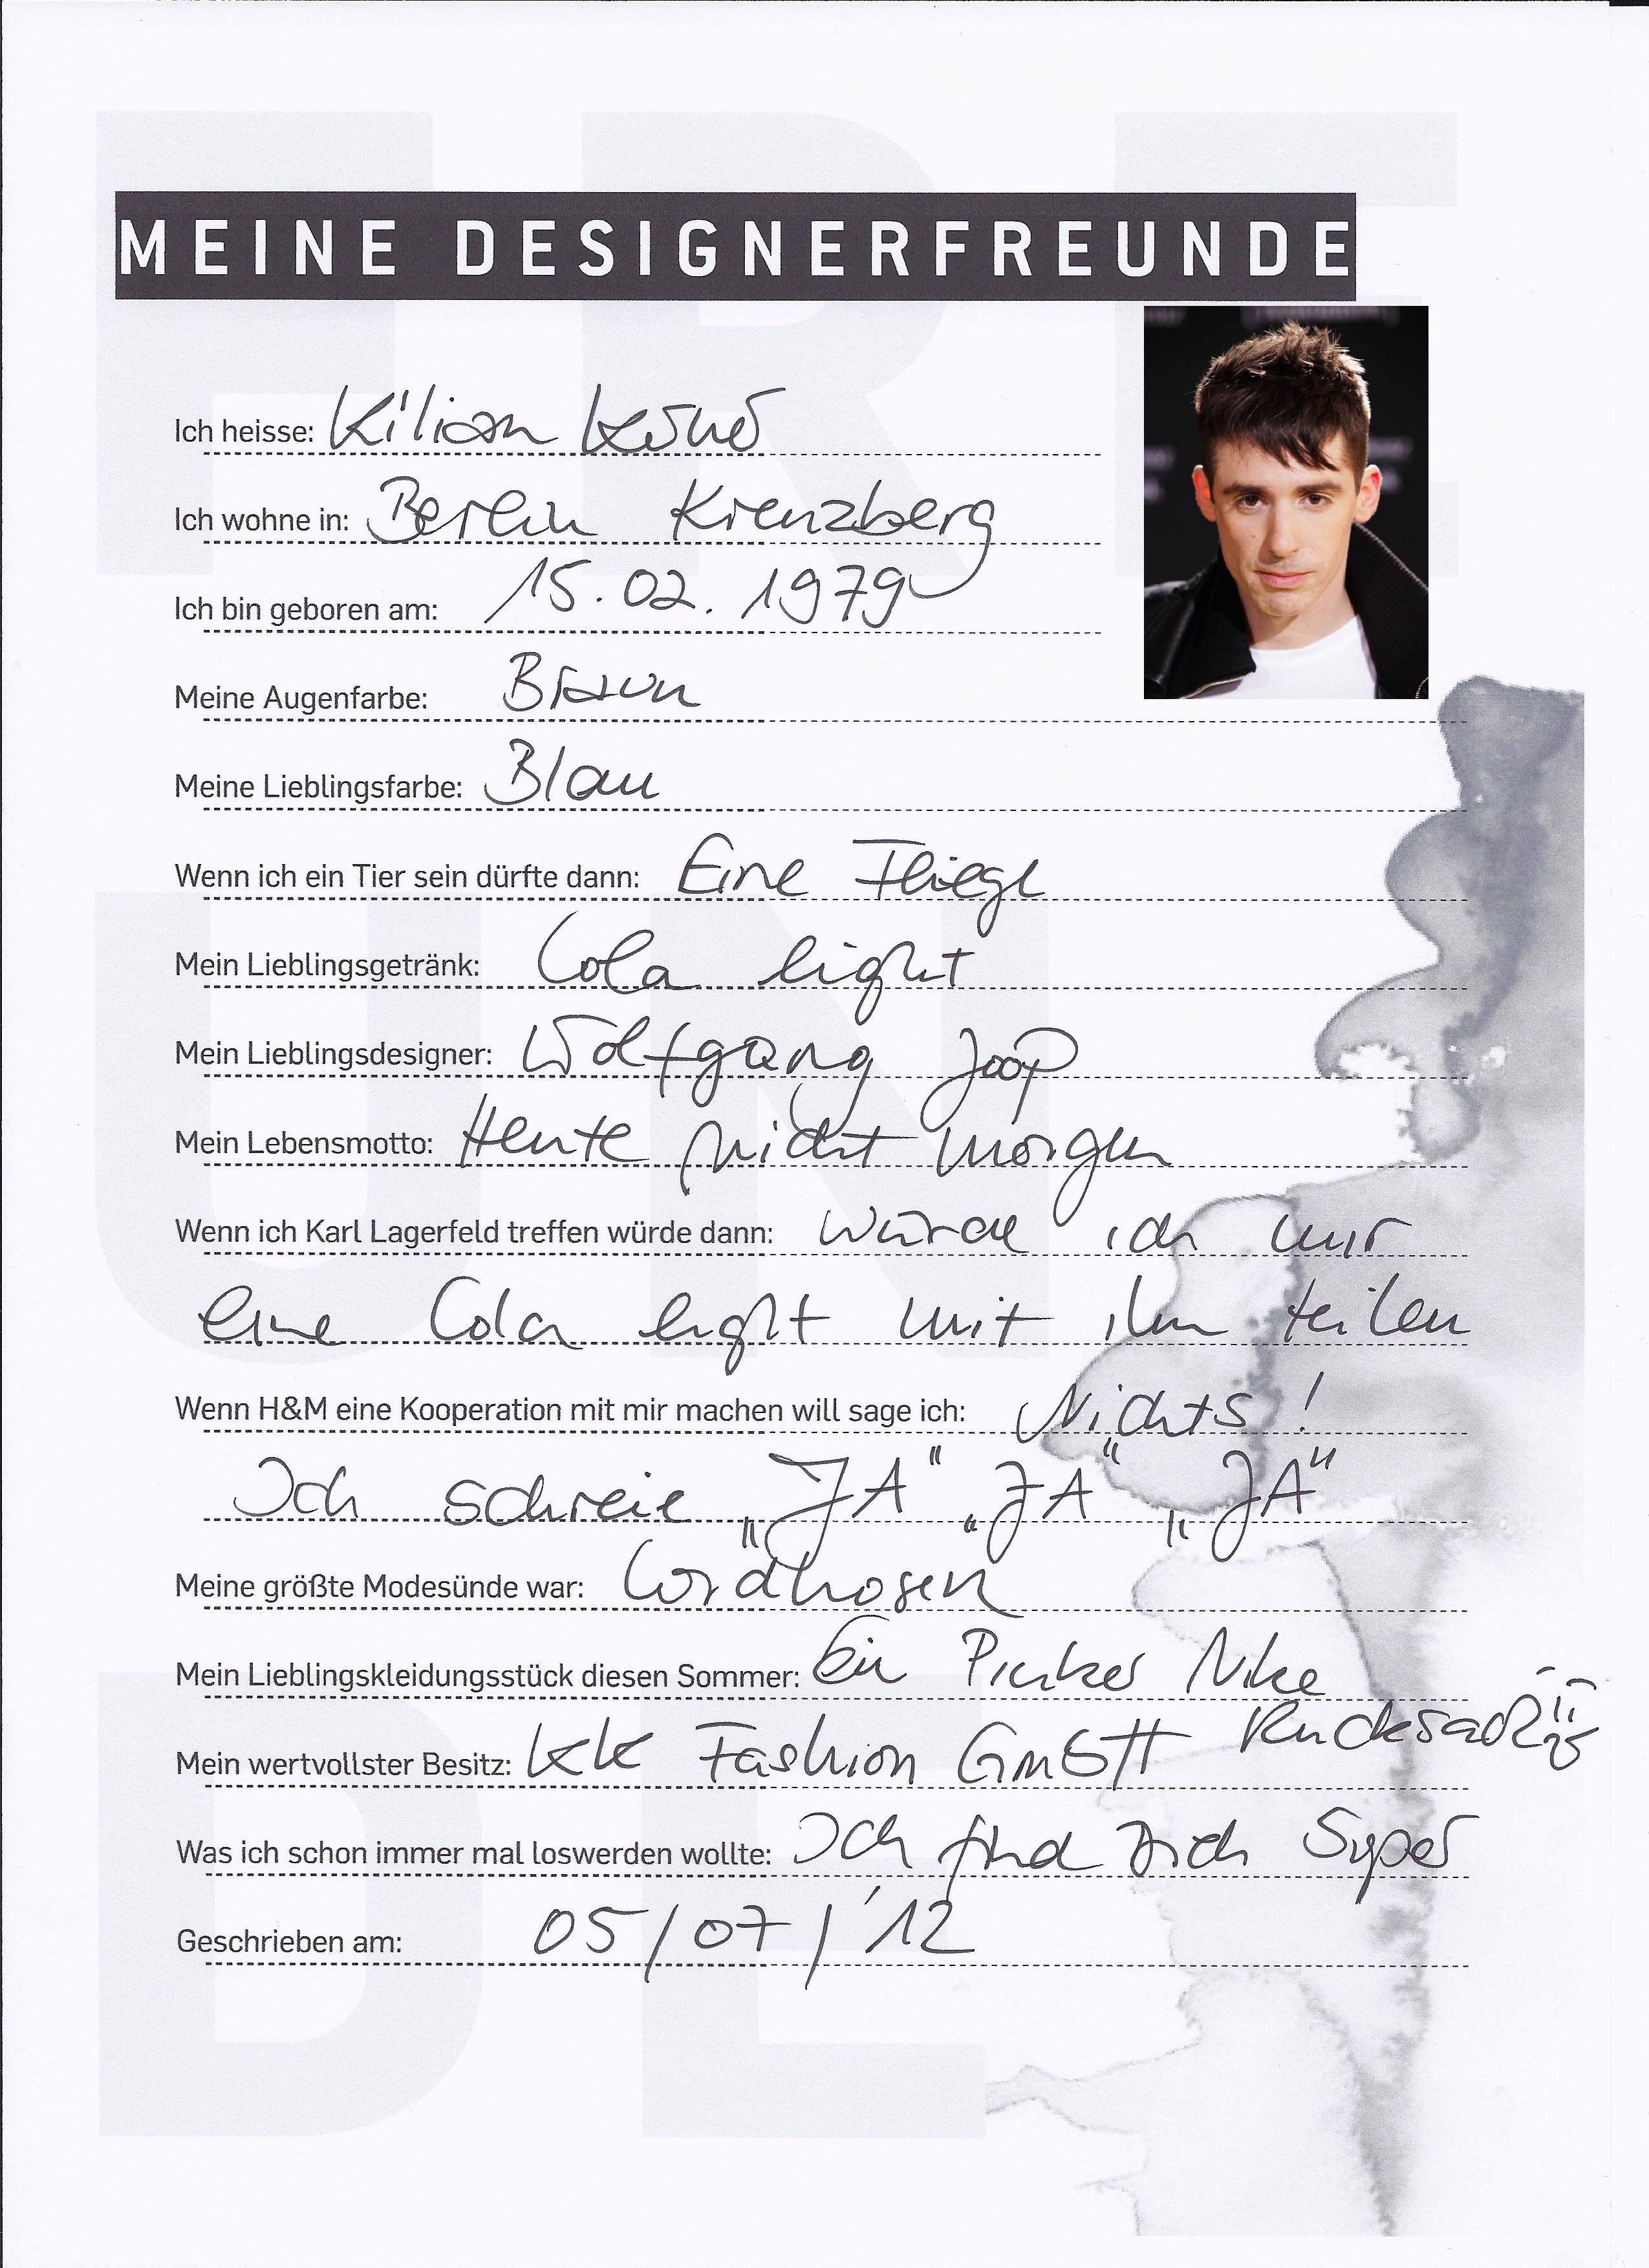 MEINE DESIGNERFREUNDE
Ich heisse: Kilian Kerner
Ich wohne in: Berlin Kreuzberg
Ich bin geboren am: 15.02.1979
Meine Augenfarbe: Braun
Meine Lieblingsfarbe: Blau
Wenn ich ein Tier sein dürfte dann: Eine Fliege
Mein Lieblingsgetränk: Cola light
Mein Lieblingsdesigner: Wolfgang Joop
Mein Lebensmotto: Heute nicht morgen
Wenn ich Karl Lagerfeld treffen würde dann: würde ich mir
eine Cola light mit ihm teilen
Wenn H&M eine Kooperation mit mir machen will sage ich: Nichts!
Ich schreie „JA" „JA" „JA"
Meine größte Modesünde war: Cordhosen
Mein Lieblingskleidungsstück diesen Sommer: Ein Pinker Nike
Rucksack
Mein wertvollster Besitz: KK Fashion GmbH
Was ich schon immer mal loswerden wollte: Ich find Dich Super
Geschrieben am: 05/07/'12
FRE
UN
DE